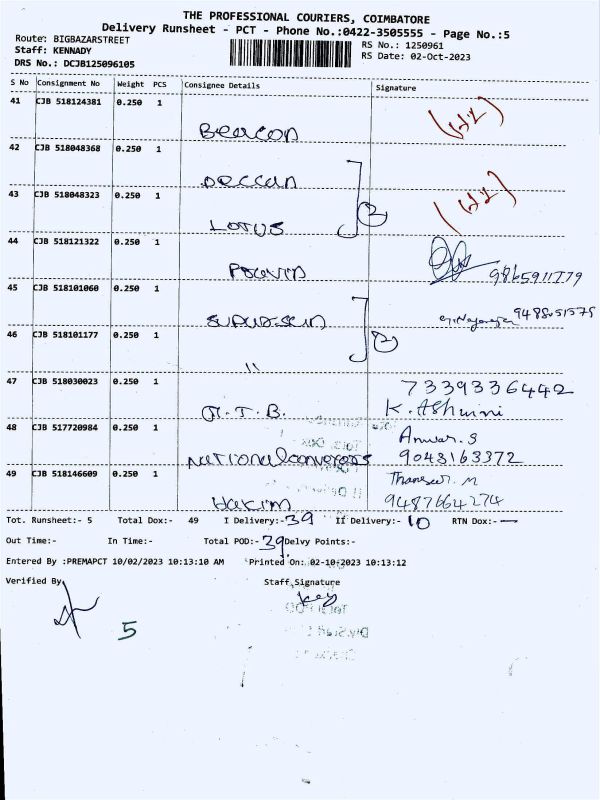 THE PROFESSIONAL COURIERS, COIMBATORE
Delivery Runsheet - PCT - Phone No.:0422-3505555 - Page No.:5
Route: BIGBAZARSTREET
RS No.: 1250961
Staff: KENNADY
RS Date: 02-Oct-2023
DRS No.: DCJB125096105
S No Consignment No Weight PCS Consignee Details Signature
41 CJB 518124381 0.250 1 Beacon
42 CJB 518048368 0.250 1 Deccan
43 CJB 518048323 0.250 1 LOTUS
2
44 CJB 518121322 0.250 1 9865911779
45 CJB 518101060 0.250 1
46 CJB 518101177 0.250 1 "
2
47 CJB 518030023 0.250 1 7339336442
K. Ashwini
48 CJB 517720984 0.250 1 Nationalconveyors Anwar. S
9043163372
49 CJB 518146609 0.250 1 Hakim M
9487664274
Tot. Runsheet:- 5 Total Dox:- 49 I Delivery:- 39 II Delivery:- 10 RTN Dox:- —
Out Time:- In Time:- Total POD:- 39 Delvy Points:-
Entered By :PREMAPCT 10/02/2023 10:13:10 AM Printed On: 02-10-2023 10:13:12
Verified By Staff Signature
5